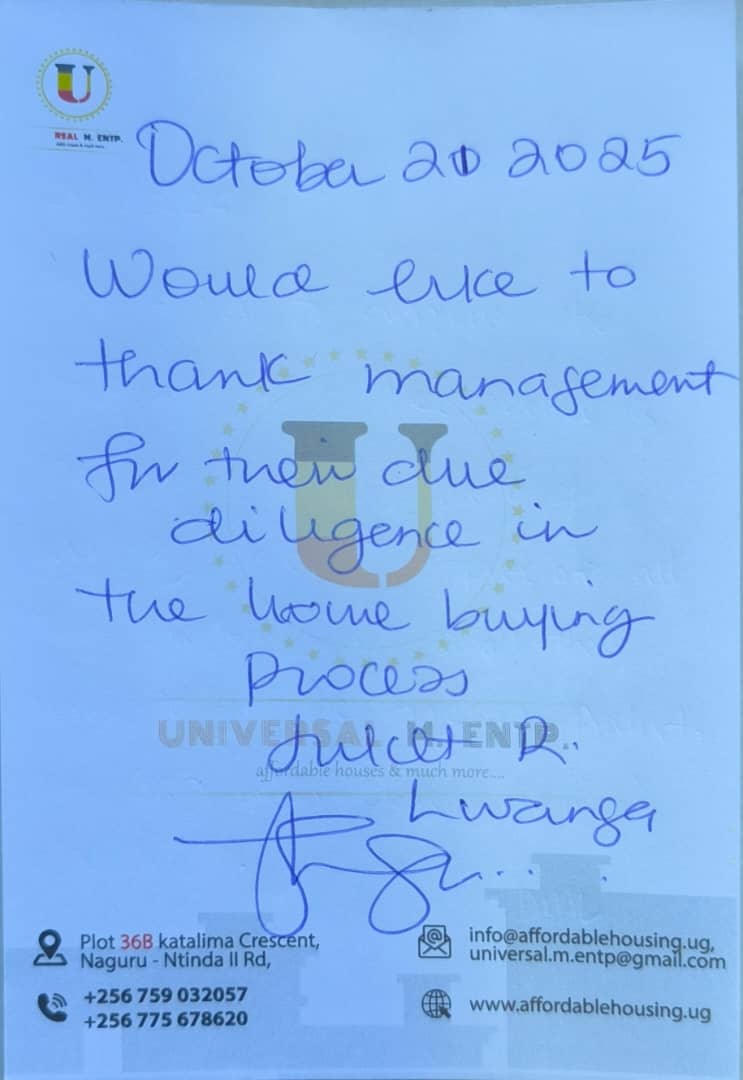 U
RSAL M. ENTP.
October 20 2025
Would like to
thank management
for their due
diligence in
the home buying
process
UNIVERSAL M. ENTP..
affordable houses & much more....
Juliet R.
Lwanga
Plot 36B katalima Crescent,
Naguru - Ntinda II Rd,
+256 759 032057
+256 775 678620
info@affordablehousing.ug,
universal.m.entp@gmail.com
www.affordablehousing.ug